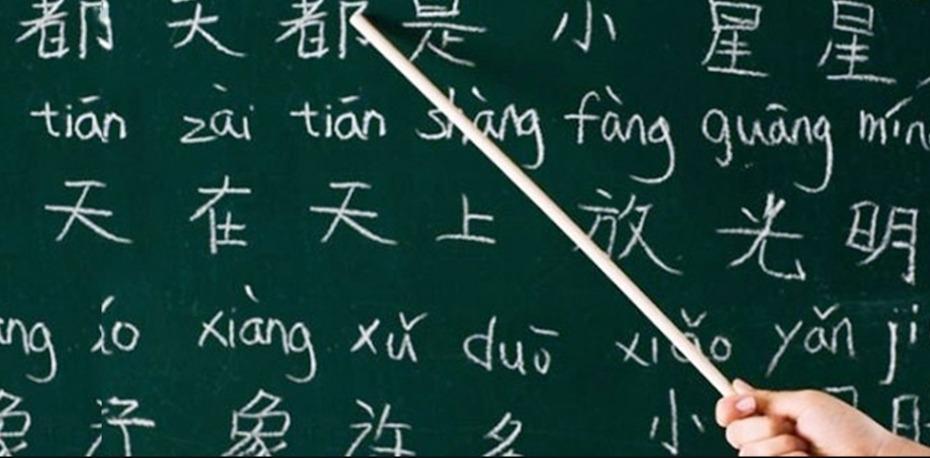 都 天 都 是 小 星 星
tiān zài tiān shàng fàng guāng mín
天 在 天 上 放 光 明
ng xiàng xǔ duō xiǎo yǎn ji
象 象 许 多 小